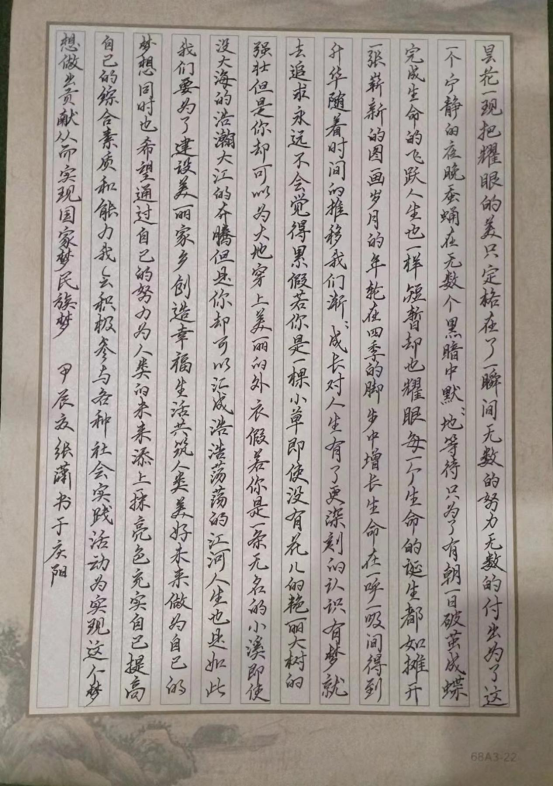 昙花一现把耀眼的美只定格在了一瞬间无数的努力无数的付出为了这
一个宁静的夜晚蚕蛹在无数个黑暗中默默地等待只为了有朝一日破茧成蝶
完成生命的飞跃人生也一样短暂却也耀眼每一个生命的诞生都如摊开
一张崭新的图画岁月的年轮在四季的脚步中增长生命在一呼一吸间得到
升华随着时间的推移我们渐渐成长对人生有了更深刻的认识有梦就
去追求永远不会觉得累假若你是一棵小草即使没有花儿的艳丽大树的
强壮但是你却可以为大地穿上美丽的外衣假若你是一条无名的小溪即使
没大海的浩瀚大江的奔腾但是你却可以汇成浩浩荡荡的江河人生也是如此
我们要为了建设美丽家乡创造幸福生活共筑人类美好未来做为自己的
梦想同时也希望通过自己的努力为人类的未来添上一抹亮色充实自己提高
自己的综合素质和能力我会积极参与各种社会实践活动为实现这个梦
想做出贡献从而实现国家梦民族梦 甲辰 张潇书于庆阳
68A3-22